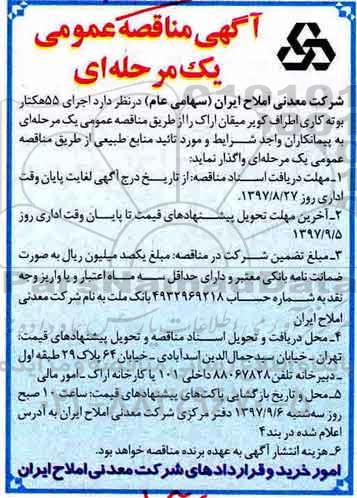 آگهی مناقصه عمومی
یک مرحله‌ای
شرکت معدنی املاح ایران (سهامی عام) درنظر دارد اجرای ۵۵هکتار
بوته کاری اطراف کویر میقان اراک را از طریق مناقصه عمومی یک مرحله‌ای
به پیمانکاران واجد شرایط و مورد تائید منابع طبیعی از طریق مناقصه
عمومی یک مرحله‌ای واگذار نماید:
۱ـ مهلت دریافت اسناد مناقصه: از تاریخ درج آگهی لغایت پایان وقت
اداری روز ۱۳۹۷/۸/۲۷.
۲ـ آخرین مهلت تحویل پیشنهادهای قیمت تا پایان وقت اداری روز
۱۳۹۷/۹/۵
۳ـ مبلغ تضمین شرکت در مناقصه: مبلغ یکصد میلیون ریال به صورت
ضمانت نامه بانکی معتبر و دارای حداقل سه ماه اعتبار و یا واریز وجه
نقد به شماره حساب ۴۹۳۲۹۶۹۲۱۸ بانک ملت به نام شرکت معدنی
املاح ایران
۴ـ محل دریافت و تحویل اسناد مناقصه و تحویل پیشنهادهای قیمت:
تهران ـ خیابان سیدجمال‌الدین اسدآبادی ـ خیابان ۶۴ پلاک ۲۹ طبقه اول
ـ دبیرخانه تلفن ۸۸۰۶۷۸۲۸ داخلی ۱۰۱ یا کارخانه اراک ـ امور مالی
۵ـ محل و تاریخ بازگشایی پاکت‌های پیشنهادهای قیمت: ساعت ۱۰ صبح
روز سه‌شنبه ۱۳۹۷/۹/۶ دفتر مرکزی شرکت معدنی املاح ایران به آدرس
اعلام شده در بند ۴
۶ـ هزینه انتشار آگهی به عهده برنده مناقصه خواهد بود.
امور خرید و قراردادهای شرکت معدنی املاح ایران